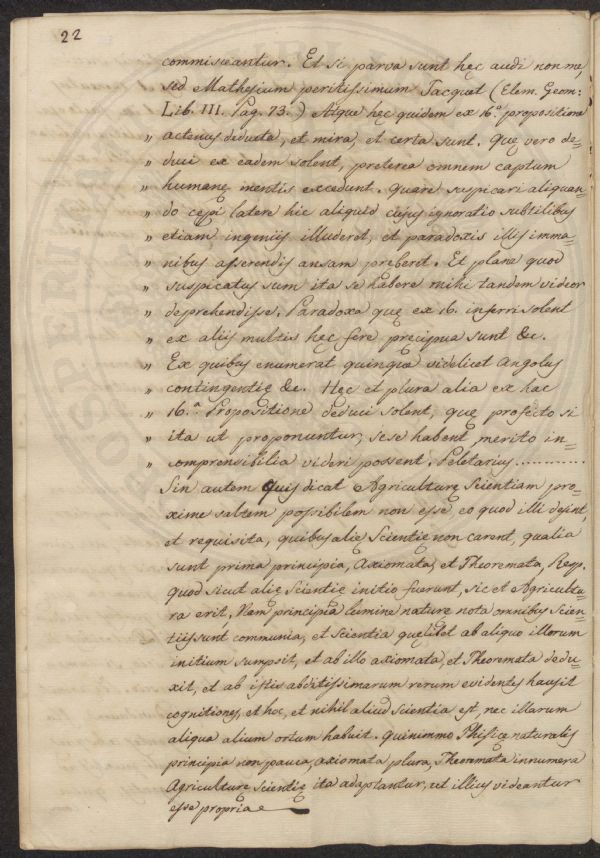 22
commisceantur. Et si parva sunt hęc audi non me,
sed Mathesium peritissimum Tacquet (Elem. Geom:
Lib. III. Pag. 73.) Atque hęc quidem ex 16.ª propositione
„ actenus deducta, et mira, et certa sunt. Quę vero de=
„ duci ex eadem solent, pręterea omnem captum
„ humanę mentis excedunt. Quare suspicari aliquan=
„ do cępi latere hic aliquid cujus ignoratio subtilibus
„ etiam ingeniis illuderet, et paradoxis illis imma=
„ nibus asserendis ansam pręberet. Et plane quod
„ suspicatus sum ita se habere mihi tandem videor
„ deprehendisse. Paradoxa quę ex 16. inferri solent
„ ex aliis multis hęc fere pręcipua sunt &c.
„ Ex quibus enumerat quinque videlicet Angolus
„ contingentię &c. Hęc et plura alia ex hac
„ 16.ª Propositione deduci solent, quę profecto si
„ ita ut proponuntur, sese habent, merito in=
„ comprensibilia videri possent. Peletarius ............
Sin autem quis dicat Agriculturę Scientiam pro=
xime saltem possibilem non esse, eo quod illi desint,
et requisita, quibus alię Scientię non carent, qualia
sunt prima principia, Axiomata, et Theoremata, Resp.
quod sicut alię Scientię initio fuerunt, sic et Agricultu=
ra erit. Nam principia lumine naturę nota omnibus Scien=
tiis sunt communia, et Scientia quęlibet ab aliquo illorum
initium sumpsit, et ab illo axiomata, et Theoremata dedu=
xit, et ab istis abditissimarum rerum evidentes hausit
cognitiones, et hoc, et nihil aliud scientia est, nec illarum
aliqua alium ortum habuit. Quinimmo Phisicę naturalis
principia non pauca, axiomata plura, Theoremata innumera
Agriculturę scientię ita adaptantur, ut illius videantur
esse propria